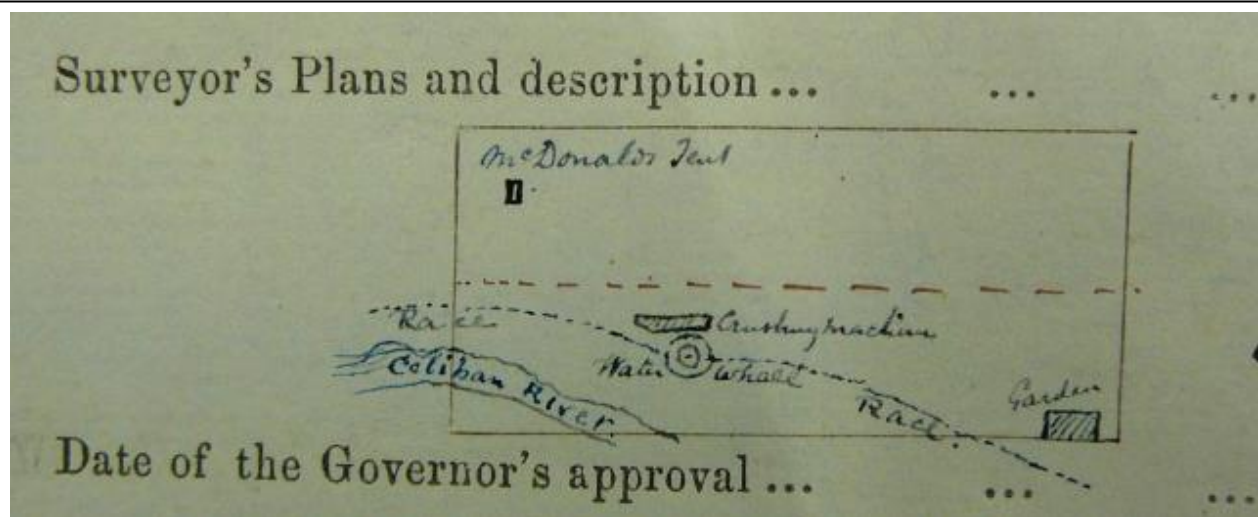 Surveyor's Plans and description ... ... ...
McDonalds Tent
Race
Crushing machine
Water wheel
Coliban River
Race
Garden
Date of the Governor's approval ... ... ...